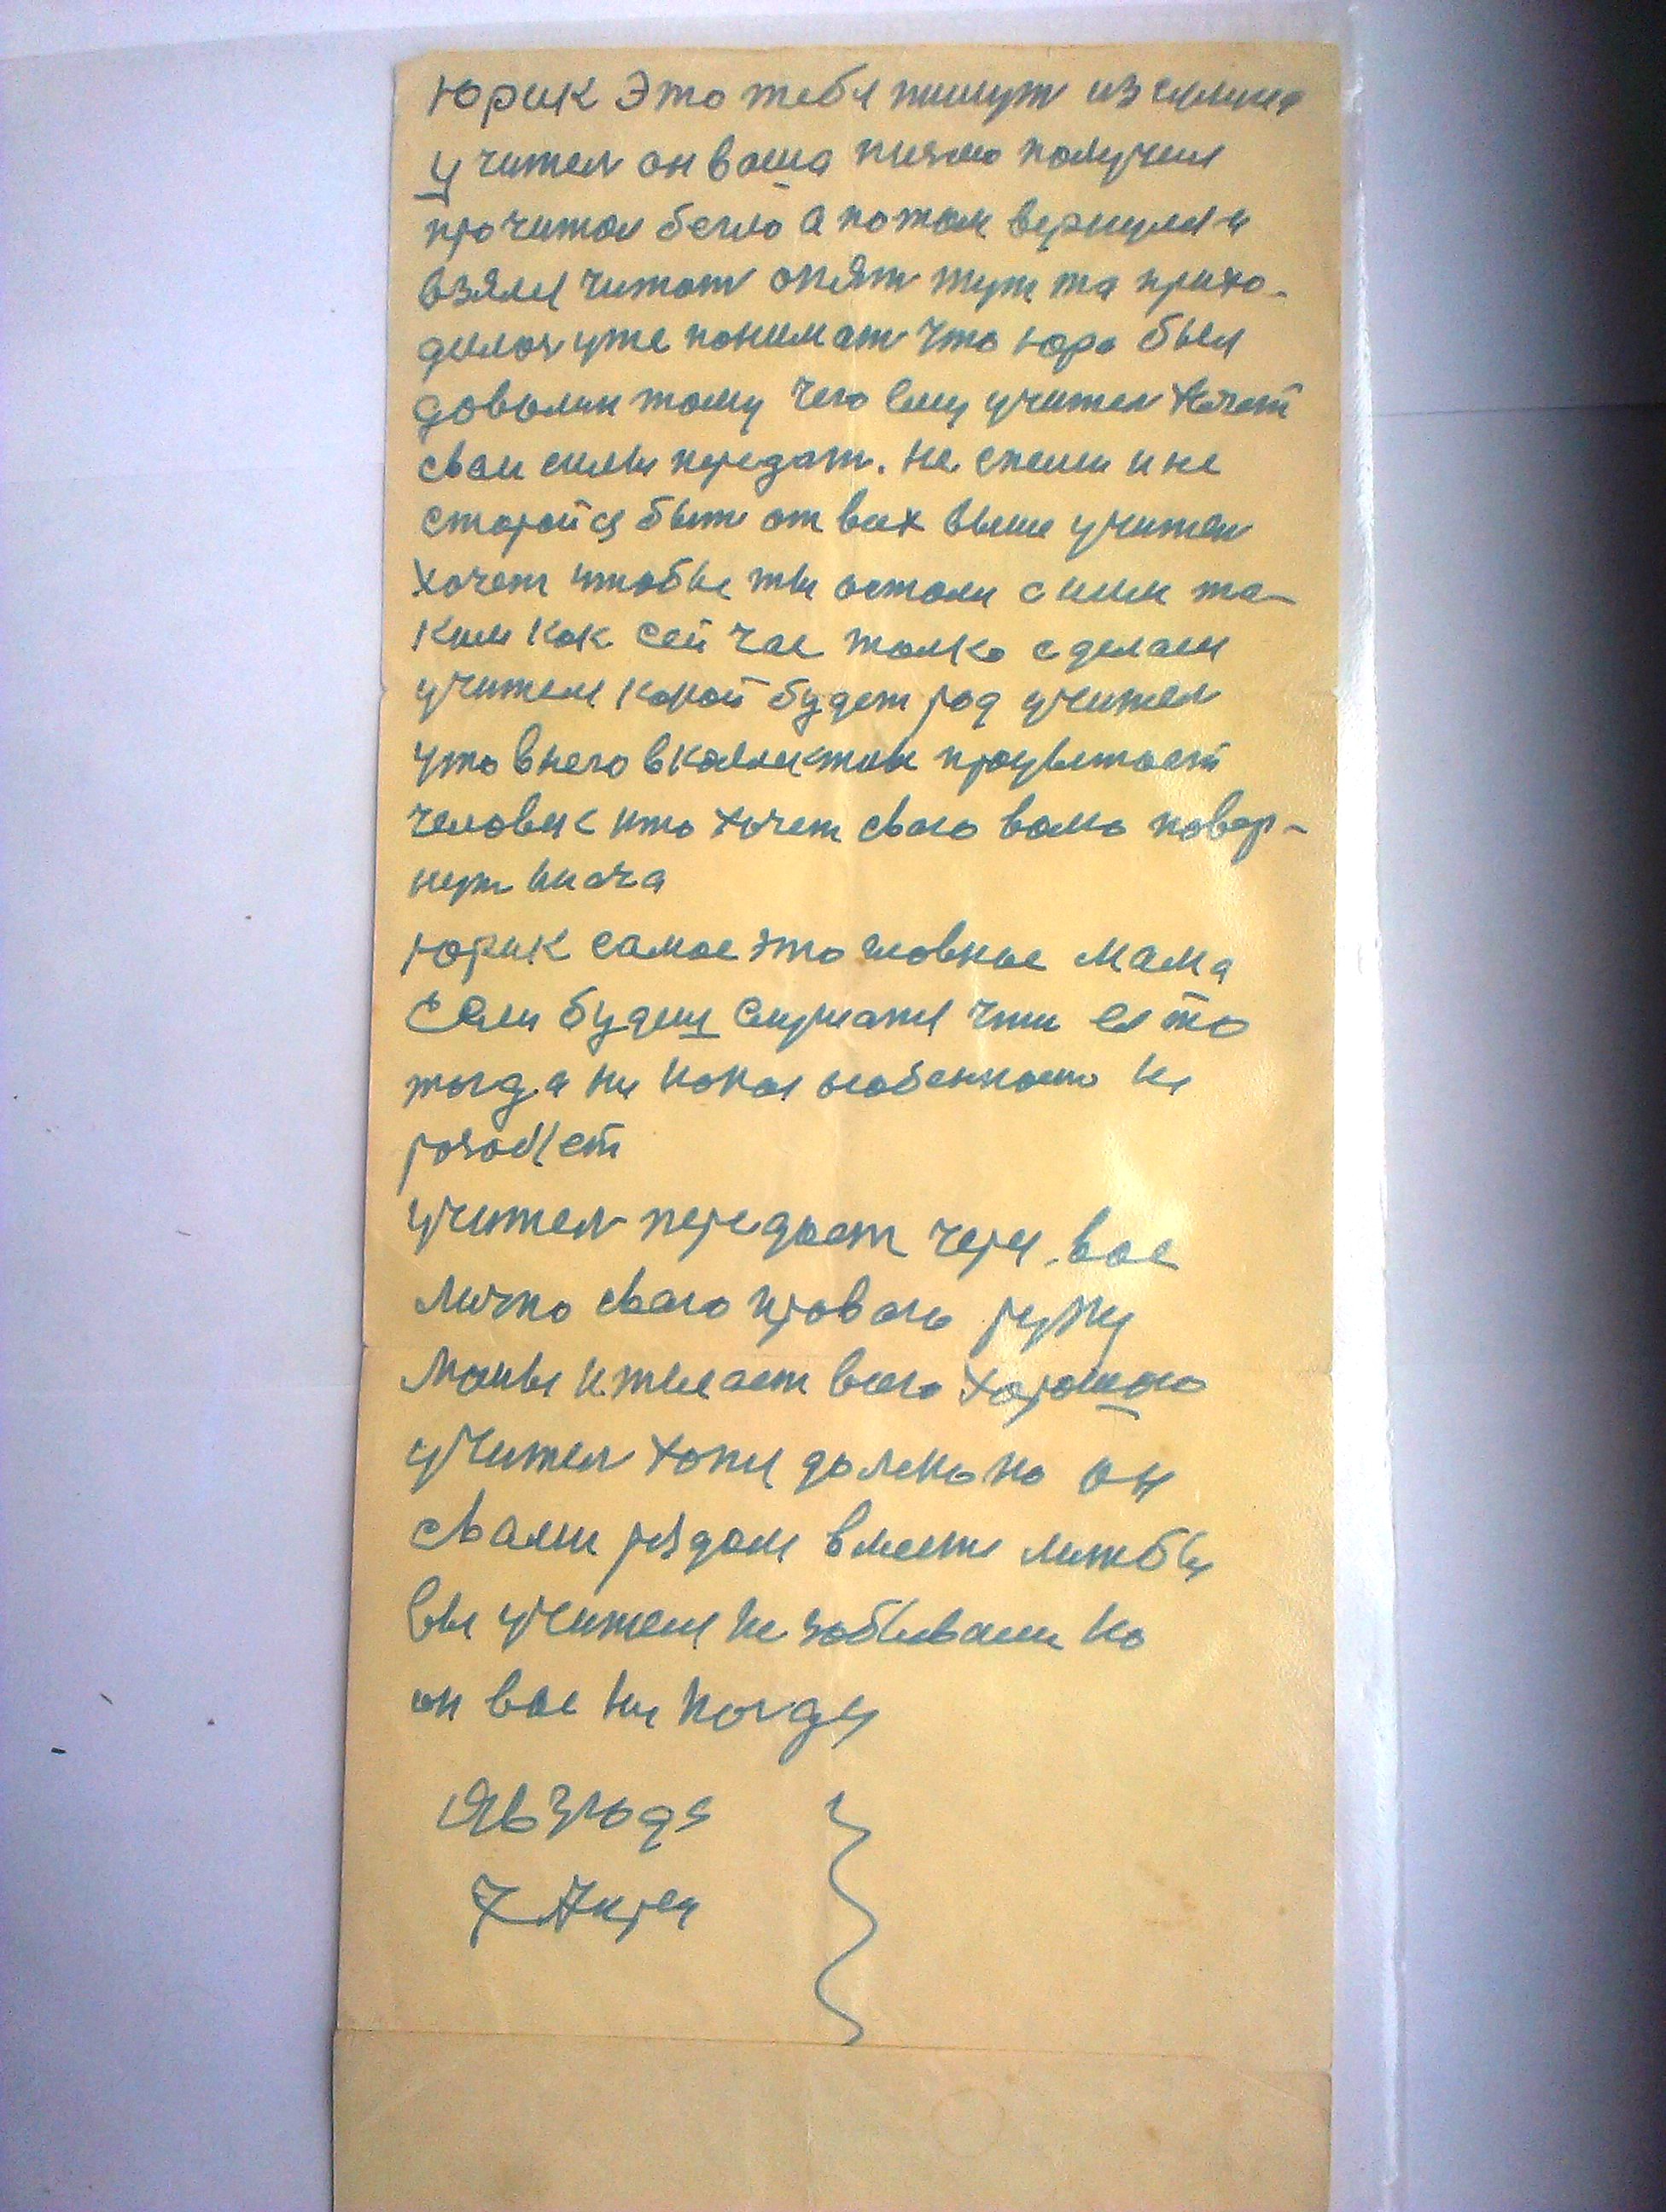 Юрик Это тебя пишут из
Учител он ваша писмо получил
прочитал бегло а потом вернулся и
взялся читат опят тут та прихо-
дилос уже понимат что Юра был
доволин тому чего ему учител хочет
свои силы передат. Не спеши и не
старайся быт от всех выше учител
хочет чтобы ты остался с ним та-
ким как сей час толко сделаем
учителя какой будет рад учител
что в него в коллективе процветает
человек что хочет свого волю повер-
нут иначе
Юрик самое это главное мама
Если будеш слушатся чти её то
тогда ни какая особенность не
розобет
учител передает через вас
лично свого правого руку
мамы и желает всего хорошого
учител хотя далеко но он
с вами рядом вместе лижбы
вы учителя не забывали но
он вас ни когда